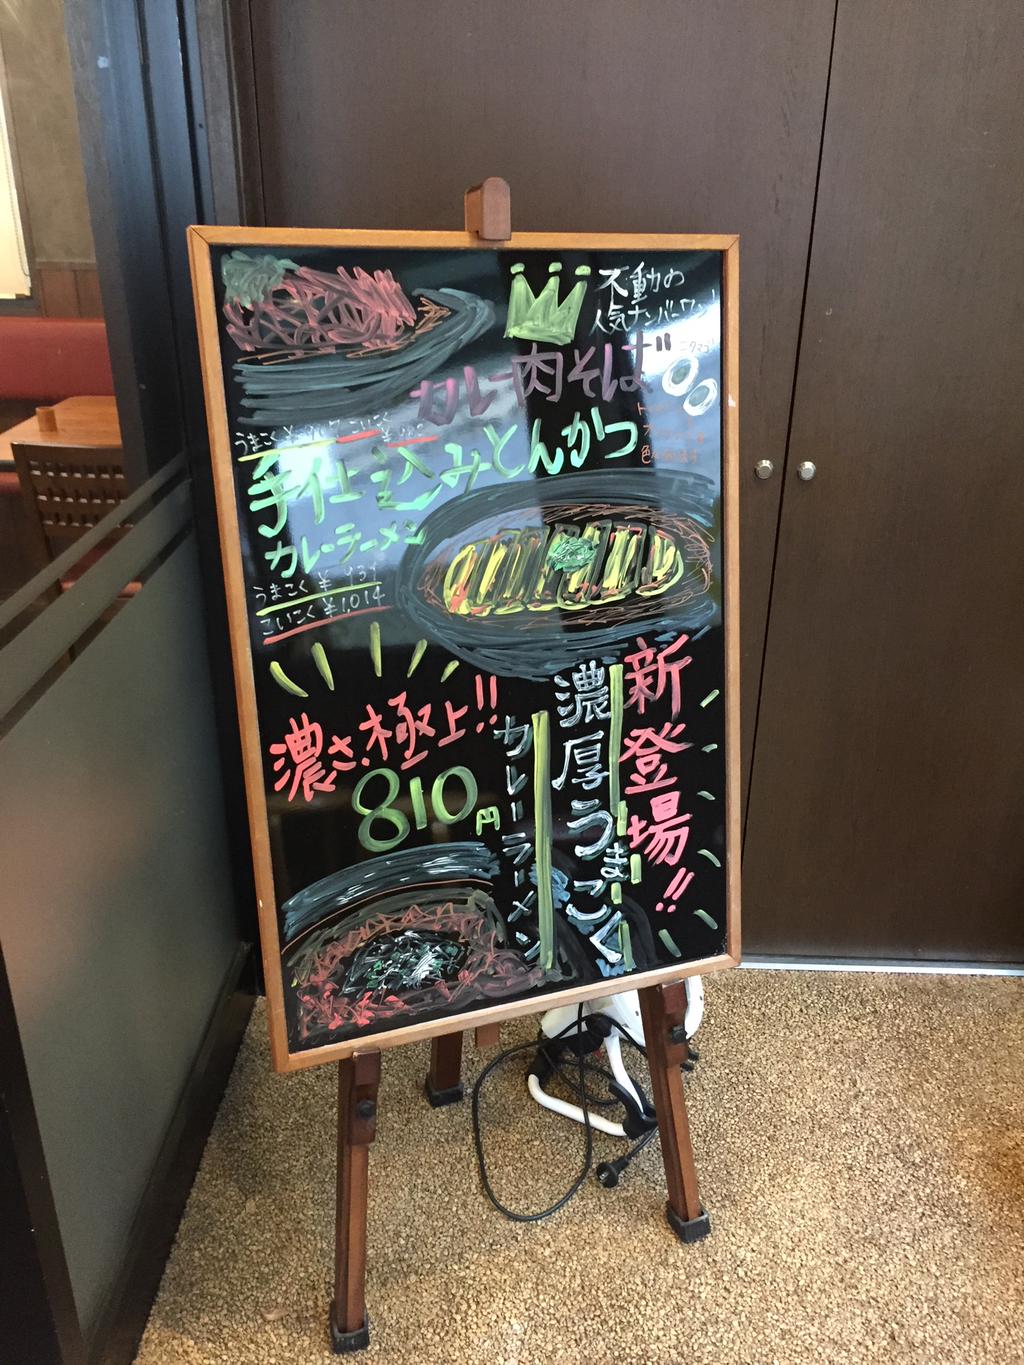 不動の
人気ナンバーワン!
カレー肉そば
うまこく
こいこく
手仕込みとんかつ
カレーラーメン
うまこく ¥934
こいこく ¥1,014
新登場!!
濃厚うまこく
カレーラーメン
濃さ極上!!
810円